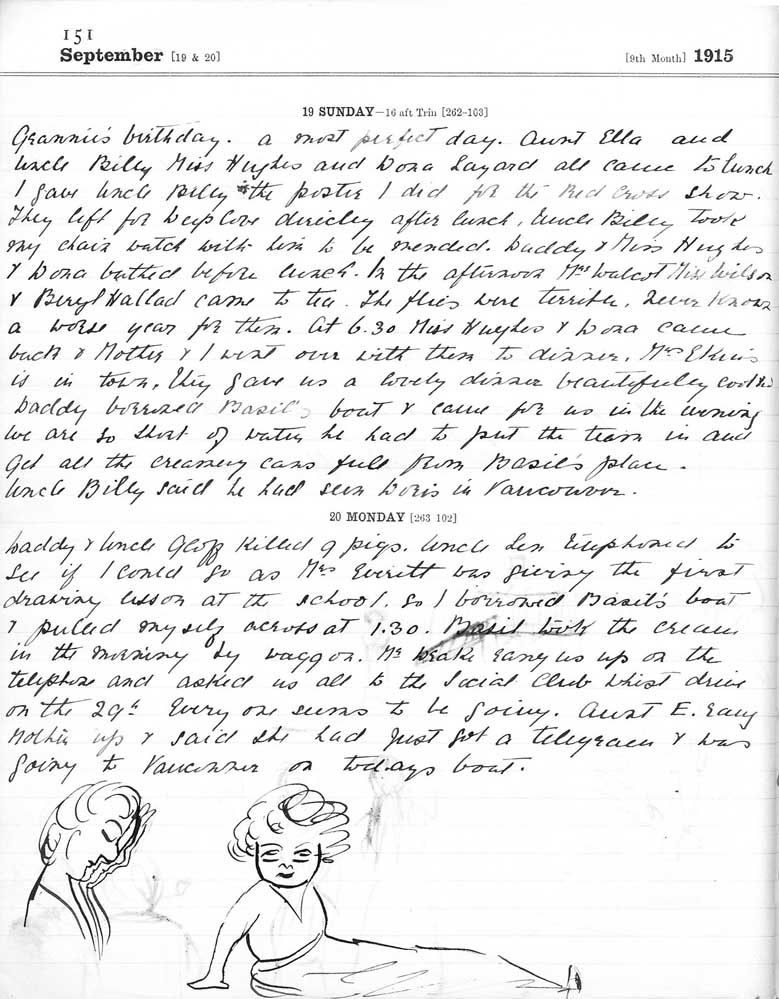 151
September [19 & 20] [9th Month] 1915
19 SUNDAY—16 aft Trin [262-103]
Grannie's birthday. a most perfect day. Aunt Ella and
Uncle Billy Miss Hughes and Dona Layard all came to lunch
I gave Uncle Billy the poster I did for the Red Cross show.
They left for Deep Cove directly after lunch. Uncle Billy took
my chain watch with him to be mended. Daddy & Miss Hughes
& Dona bathed before lunch. In the afternoon Mrs Walcot Miss Wilson
& Beryl Hallad came to tea. The flies were terrible. Never known
a worse year for them. At 6.30 Miss Hughes & Dona came
back & Mother & I went over with them to dinner. Mrs
is in town. They gave us a lovely dinner beautifully cooked
Daddy borrowed Basil's boat & came for us in the evening
We are so short of water he had to put the team in and
Get all the creamery cans full from Basil's place.
Uncle Billy said he had seen Doris in Vancouver.
20 MONDAY [263 102]
Daddy & Uncle Geoff killed 9 pigs. Uncle Len telephoned to
See if I could go as Mrs Everett was giving the first
drawing lesson at the school. So I borrowed Basil's boat
& pulled myself across at 1.30. Basil took the cream
in the morning by waggon. Mr Drake rang us up on the
telephone and asked us all to the Social Club Whist drive
on the 29th Every one seems to be going. Aunt E. rang
Mother up & said she had just got a telegram & was
going to Vancouver on todays boat.